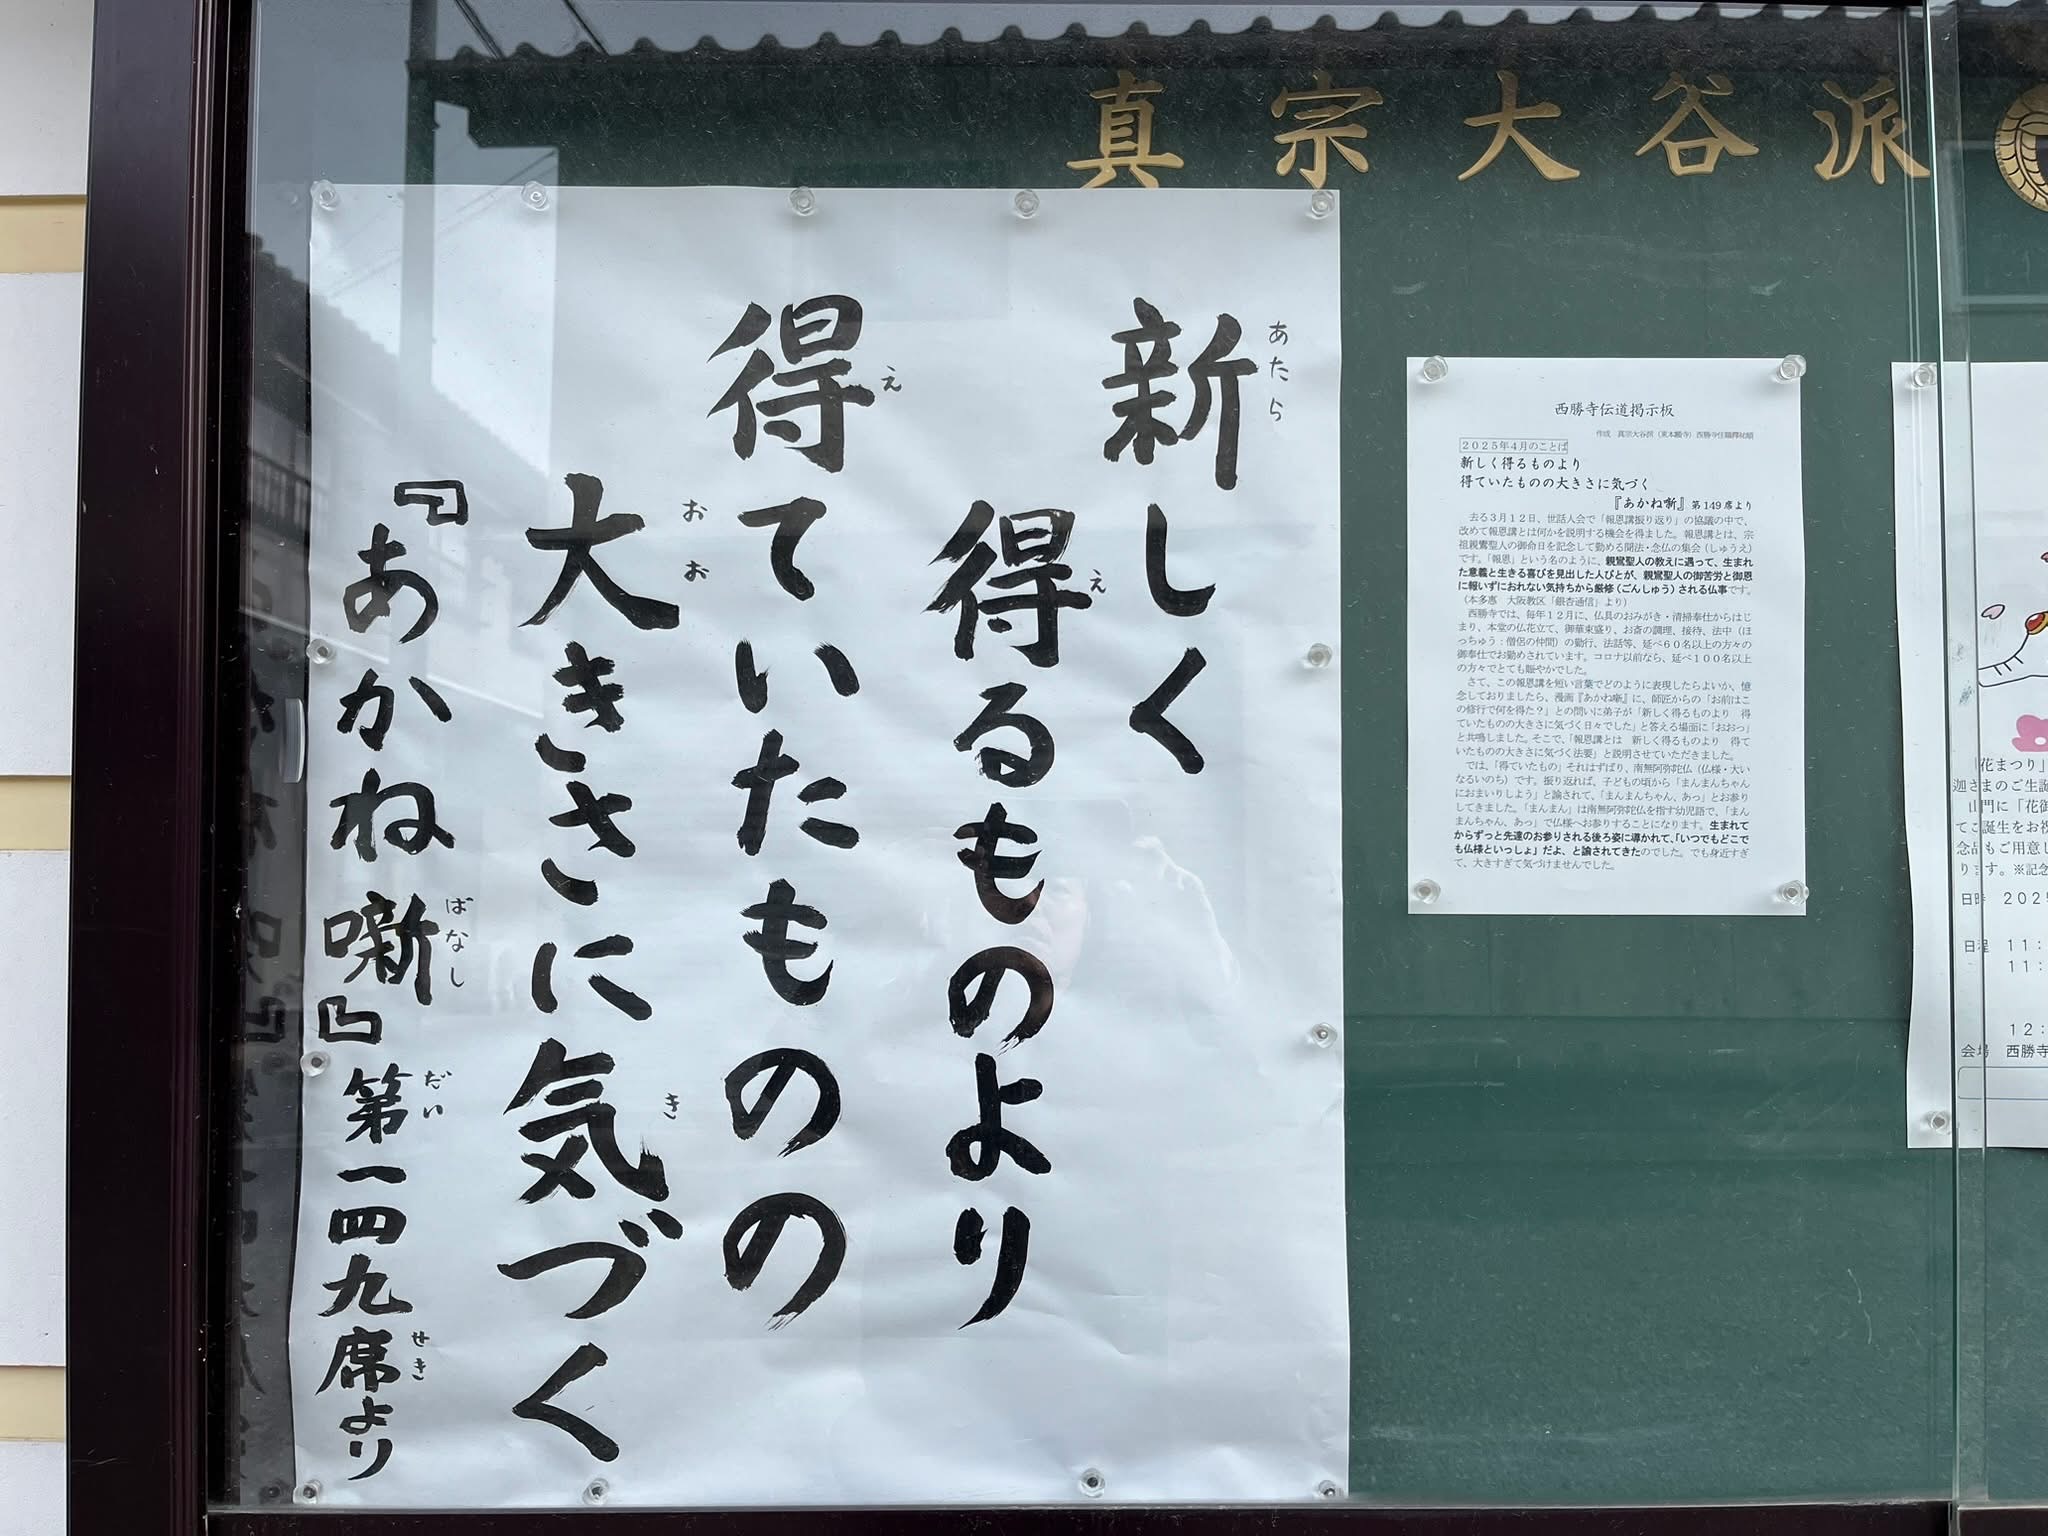 真宗大谷派
新しく
あたら
得るものより
え
得ていたものの
え
大きさに気づく
おお
き
『あかね噺』第一四九席より
ばなし
だい
せき
西勝寺伝道掲示板
2025年4月のことば
新しく得るものより
得ていたものの大きさに気づく
『あかね噺』第149席より
去る3月12日、世話人会で「報恩講振り返り」の協議の中で、
改めて報恩講とは何かを説明する機会を得ました。報恩講とは、宗
祖親鸞聖人の御命日を記念して勤める聞法・念仏の集会(しゅうえ)
です。「報恩」という名のように、親鸞聖人の教えに遇って、生まれ
た意義と生きる喜びを見出した人びとが、親鸞聖人の御苦労と御恩
に報いずにおれない気持ちから厳修(ごんしゅう)される仏事です。
(本多恵 大阪教区「銀杏通信」より)
西勝寺では、毎年12月に、仏具のおみがき・清掃奉仕からはじ
まり、本堂の仏花立て、御華束盛り、お斎の調理、接待、法中(ほ
っちゅう:僧侶の仲間)の勤行、法話等、延べ60名以上の方々の
御奉仕でお勤めされています。コロナ以前なら、延べ100名以上
の方々でとても賑やかでした。
さて、この報恩講を短い言葉でどのように表現したらよいか、憶
念しておりましたら、漫画『あかね噺』に、師匠からの「お前はこ
の修行で何を得た?」との問いに弟子が「新しく得るものより 得
ていたものの大きさに気づく日々でした」と答える場面に「おおっ」
と共鳴しました。そこで、「報恩講とは 新しく得るものより 得て
いたものの大きさに気づく法要」と説明させていただきました。
では、「得ていたもの」それはずばり、南無阿弥陀仏(仏様・大い
なるいのち)です。振り返れば、子どもの頃から「まんまんちゃん
におまいりしよう」と諭されて、「まんまんちゃん、あっ」とお参り
してきました。「まんまん」は南無阿弥陀仏を指す幼児語で、「まん
まんちゃん、あっ」で仏様へお参りすることになります。生まれて
からずっと先達のお参りされる後ろ姿に導かれて、「いつでもどこで
も仏様といっしょ」だよ、と諭されてきたのでした。でも身近すぎ
て、大きすぎて気づけませんでした。
「花まつり」
迦さまのご生誕
山門に「花御
てご誕生をお祝
念品もご用意し
ります。※記念
日時 2025
日程 11:
11:
12:
会場 西勝寺